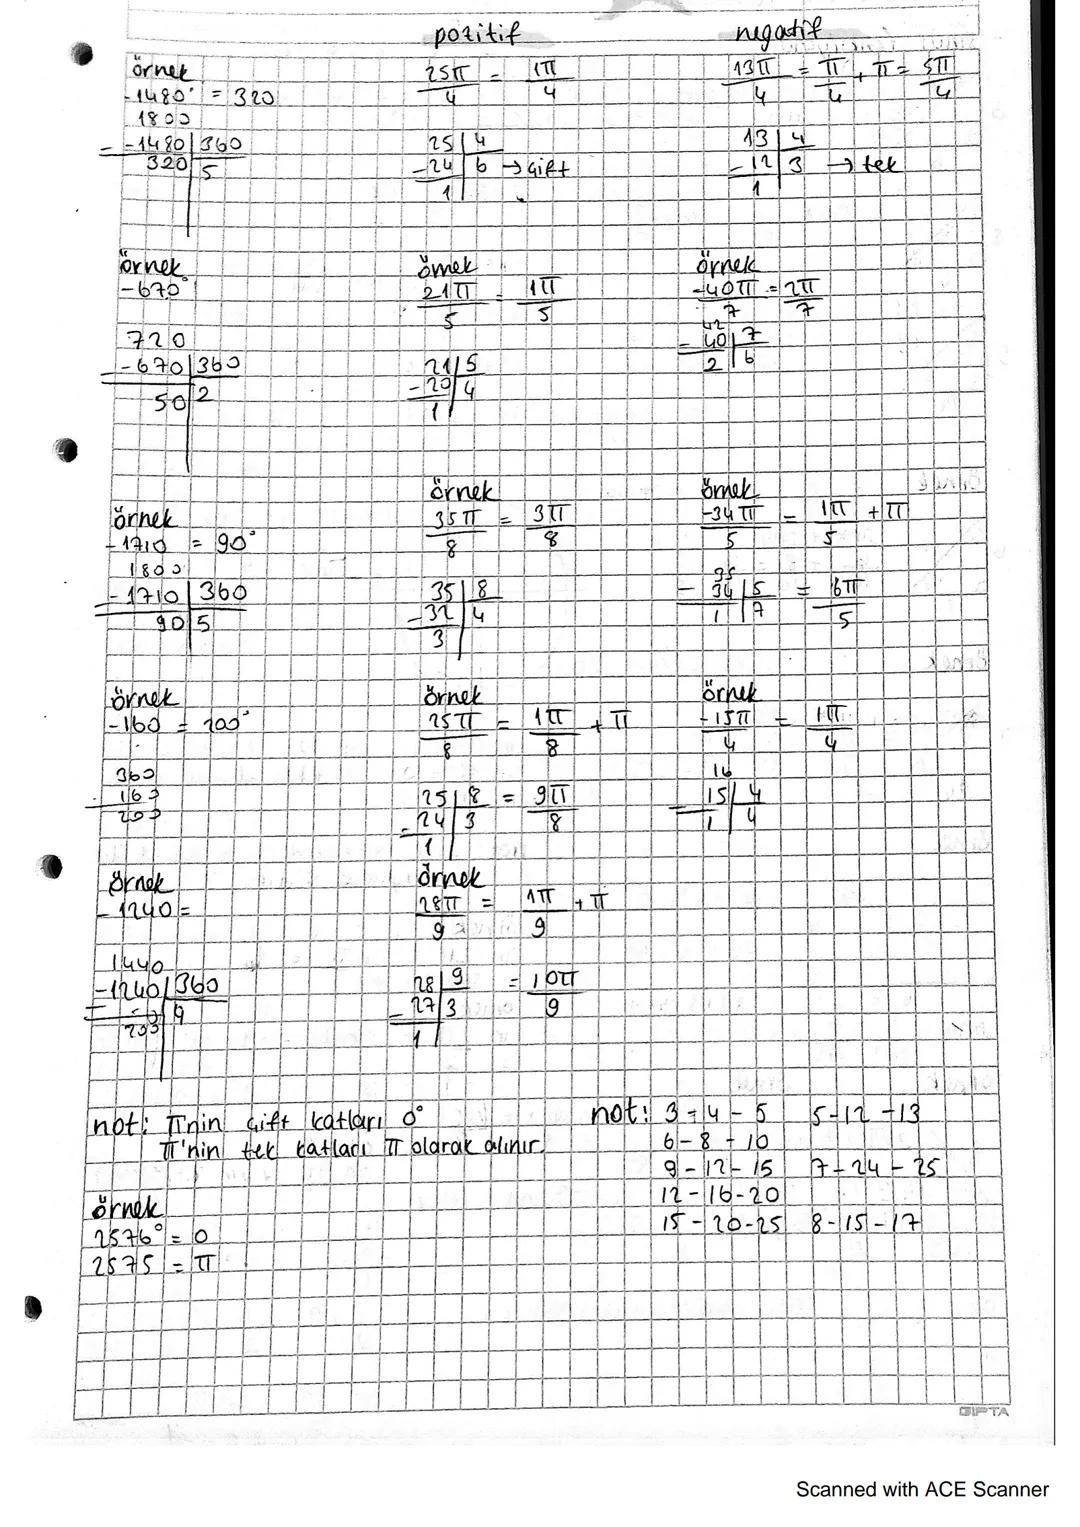 pozitif
negatif
örnek
-1480° = 320
1800
-1480 | 360
320 | 5
25π/4 = 1π/4
25 | 4
-24 | 6 → çift
1
13π/4 = π/4 + π = 5π/4
13 | 4
-12 | 3 → tek
1
örnek
-670°
720
-670 | 360
50 | 2
örnek
21π/5 = 1π/5
21 | 5
-20 | 4
1
örnek
-40π/7 = 2π/7
42
- 40 | 7
2 | 6
örnek
-1710 = 90°
1800
-1710 | 360
90 | 5
örnek
35π/8 = 3π/8
35 | 8
-32 | 4
3
örnek
-34π/5 = 1π/5 + π
35
- 34 | 5 = 6π/5
1 | 7
örnek
-160 = 200°
360
- 160
200
örnek
25π/8 = 1π/8 + π
25 | 8 = 9π/8
-24 | 3
1
örnek
-15π/4 = 1π/4
16
- 15 | 4
1 | 4
örnek
-1240 =
1440
-1240 | 360
200 | 4
örnek
28π/9 = 1π/9 + π
28 | 9 = 10π/9
-27 | 3
1
not: π'nin çift katları 0°
π'nin tek katları π olarak alınır.
örnek
2576° = 0
2575 = π
not: 3-4-5 5-12-13
6-8-10
9-12-15 7-24-25
12-16-20
15-20-25 8-15-17
GIPTA
Scanned with ACE Scanner